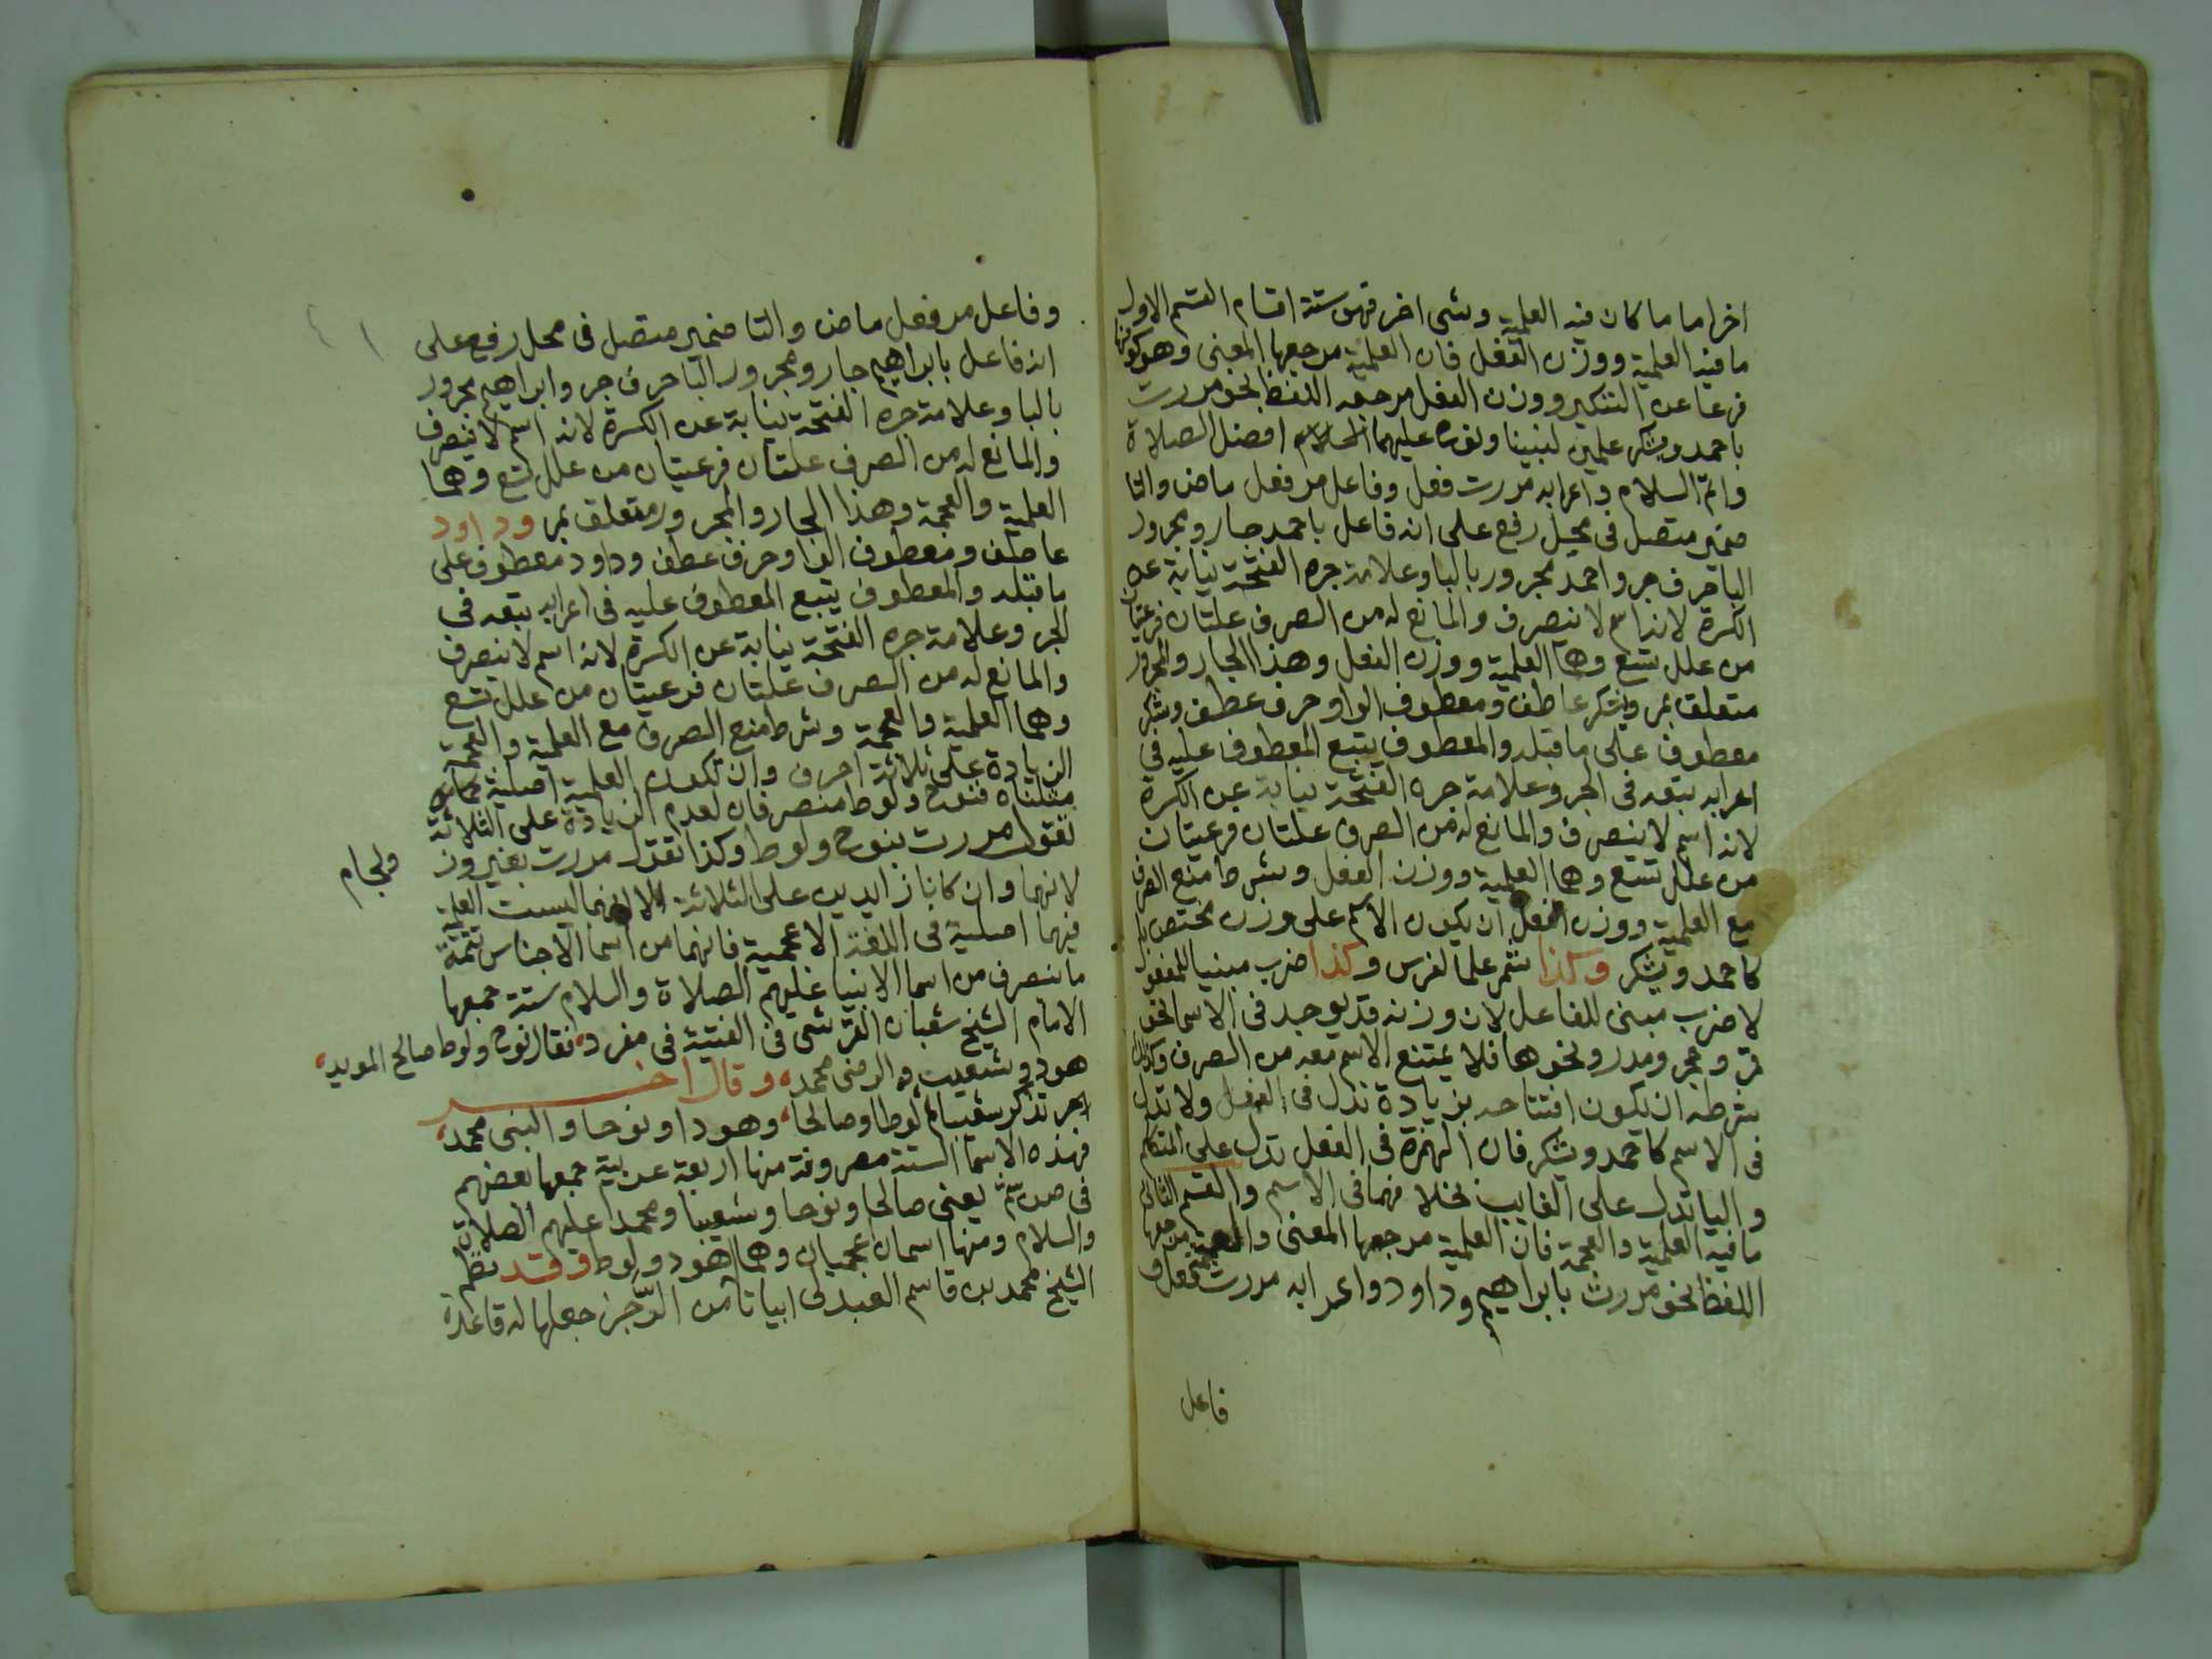 اخر اما ما كان فيه العلمية وشى اخر فهى ستة اقسام القسم الاول
ما فيه العلمية ووزن الفعل فان العلمية مرجعها المعنى وهو كونها
فرعا عن التنكير ووزن الفعل مرجعه اللفظ نحو مررت
باحمد ويشكر علمين لنبينا ونوح عليهما افضل الصلاة
واتم السلام واعرابه مررت فعل وفاعل مر فعل ماض والتا
ضمير متصل فى محل رفع على انه فاعل باحمد جار ومجرور
البا حرف جر واحمد مجرور بالبا وعلامة جره الفتحة نيابة عن
الكسرة لانه اسم لا ينصرف والمانع له من الصرف علتان فرعيتان
من علل تسع وهما العلمية ووزن الفعل وهذا الجار والمجرور
متعلق بمر ويشكر عاطف ومعطوف الواو حرف عطف ويشكر
معطوف على ما قبله والمعطوف يتبع المعطوف عليه فى
اعرابه تبعه فى الجر وعلامة جره الفتحة نيابة عن الكسرة
لانه اسم لا ينصرف والمانع له من الصرف علتان فرعيتان
من علل تسع وهما العلمية ووزن الفعل وشرط منع الصرف
مع العلمية ووزن الفعل ان يكون الاسم على وزن مختص به
كاحمد ويشكر وكذا شمر علما لفرس وكذا ضرب مبنيا للمفعول
لا ضرب مبنى للفاعل لان وزنه قد يوجد فى الاسما نحو
قمر وحجر ومدر ونحوها فلا يمتنع الاسم معه من الصرف وكذا
شرطه ان يكون افتتاحه بزيادة تدل فى الفعل ولا تدل
فى الاسم كاحمد ويشكر فان الهمزة فى الفعل تدل على المتكلم
واليا تدل على الغايب بخلافهما فى الاسم والقسم الثانى
ما فيه العلمية والعجمة فان العلمية مرجعها المعنى والعجمة مرجعها
اللفظ نحو مررت بابراهيم وداود واعرابه مررت فعل و
فاعل
وفاعل مر فعل ماض والتا ضمير متصل فى محل رفع على
انه فاعل بابراهيم جار ومجرور البا حرف جر وابراهيم مجرور
بالبا وعلامة جره الفتحة نيابة عن الكسرة لانه اسم لا ينصرف
والمانع له من الصرف علتان فرعيتان من علل تسع وهما
العلمية والعجمة وهذا الجار والمجرور متعلق بمر وداود
عاطف ومعطوف الواو حرف عطف وداود معطوف على
ما قبله والمعطوف يتبع المعطوف عليه فى اعرابه تبعه فى
الجر وعلامة جره الفتحة نيابة عن الكسرة لانه اسم لا ينصرف
والمانع له من الصرف علتان فرعيتان من علل تسع
وهما العلمية والعجمة وشرط منع الصرف مع العلمية والعجمة
الزيادة على ثلاثة احرف وان تكون العلمية اصلية كما
مثلناه فنوح ولوط منصرفان لعدم الزيادة على الثلاثة
تقول مررت بنوح ولوط وكذا تقول مررت بفيروز
ولجام
لانهما وان كانا زايدين على الثلاثة الا انهما ليست العلمية
فيهما اصلية فى اللغة الاعجمية فانهما من اسما الاجناس تتمة
ما ينصرف من اسما الانبيا عليهم الصلاة والسلام ستة جمعها
الامام الشيخ شعبان القرشى فى الفيته فى مفرد، فقال نوح ولوط صالح المويد،
هود وشعيب والرضى محمد، وقال اخر
تذكر شعيبا ثم لوطا وصالحا، وهودا ونوحا والنبى محمد،
فهذه الاسما الستة مصروفة منها اربعة عربية جمعها بعضهم
فى يعنى صالحا ونوحا وشعيبا ومحمدا عليهم الصلاة
والسلام ومنها اسمان عجميان وهما هود ولوط وقد نظم
الشيخ محمد بن قاسم العبدلى ابياتا من الرجز جعلها له قاعدة